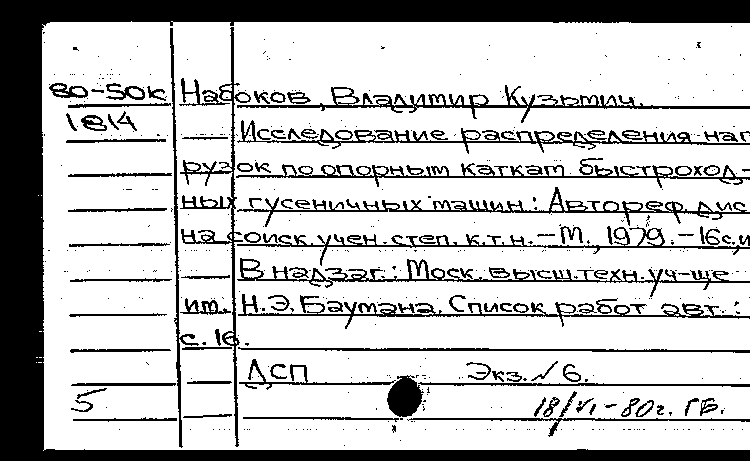 80-50к Набоков, Владимир Кузьмич.
1814 Исследование распределения наг
рузок по опорным каткам быстроход-
ных гусеничных машин: Автореф. дис
на соиск. учен. степ. к.т.н. – М., 1979. – 16с,и
В надзаг.: Моск. высш. техн. уч-ще
им. Н.Э. Баумана. Список работ авт.:
с. 16.
ДСП Экз. № 6.
5 18/VI-80г. ГБ.